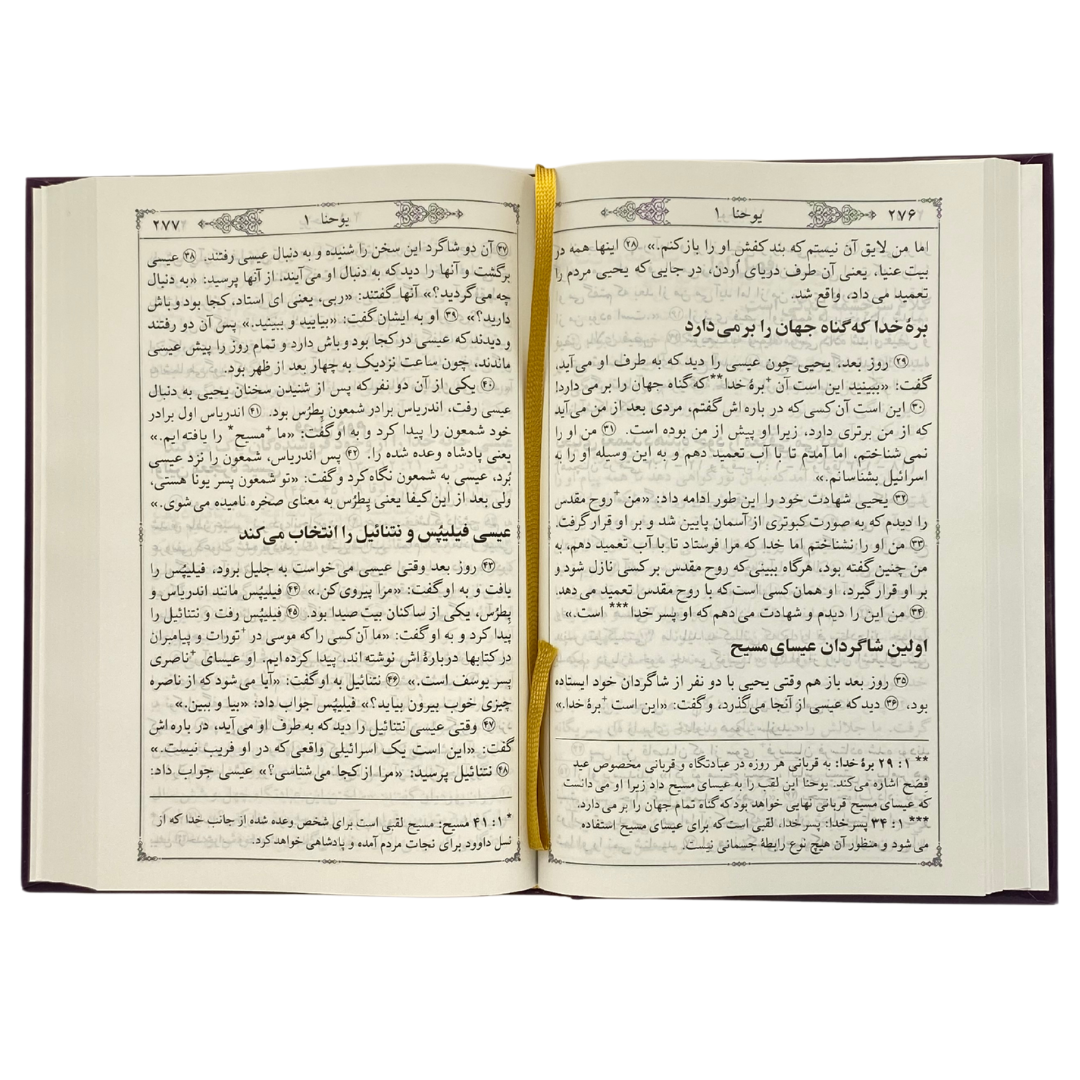 ۲۷۶ یوحنا ۱
اما من لایق آن نیستم که بند کفش او را باز کنم.» ㉘ اینها همه در
بیت عنیا، یعنی آن طرف دریای اُردن، در جایی که یحیی مردم را
تعمید می داد، واقع شد.
برهٔ خدا که گناه جهان را بر می دارد
㉙ روز بعد، یحیی چون عیسی را دید که به طرف او می آید،
گفت: «ببینید این است آن ⁺برهٔ خدا** که گناه جهان را بر می دارد!
㉚ این است آن کسی که در باره اش گفتم، مردی بعد از من می آید
که از من برتری دارد، زیرا او پیش از من بوده است. ㉛ من او را
نمی شناختم، اما آمدم تا با آب تعمید دهم و به این وسیله او را به
اسرائیل بشناسانم.»
㉜ یحیی شهادت خود را این طور ادامه داد: «من ⁺روح مقدس
را دیدم که به صورت کبوتری از آسمان پایین شد و بر او قرار گرفت.
㉝ من او را نشناختم اما خدا که مرا فرستاد تا با آب تعمید دهم، به
من چنین گفته بود، هرگاه ببینی که روح مقدس بر کسی نازل شود و
بر او قرار گیرد، او همان کسی است که با روح مقدس تعمید می دهد.
㉞ من این را دیدم و شهادت می دهم که او پسر خدا*** است.»
اولین شاگردان عیسای مسیح
㉟ روز بعد باز هم وقتی یحیی با دو نفر از شاگردان خود ایستاده
بود، ㊱ دید که عیسی از آنجا می گذرد، و گفت: «این است ⁺برهٔ خدا.»
** ۱: ۲۹ برهٔ خدا: به قربانی هر روزه در عبادتگاه و قربانی مخصوص عید
فِصَح اشاره می کند. یوحنا این لقب را به عیسای مسیح داد زیرا او می دانست
که عیسای مسیح قربانی نهایی خواهد بود که گناه تمام جهان را بر می دارد.
*** ۱: ۳۴ پسر خدا: پسر خدا، لقبی است که برای عیسای مسیح استفاده
می شود و منظور آن هیچ نوع رابطهٔ جسمانی نیست.
یوحنا ۱ ۲۷۷
㊲ آن دو شاگرد این سخن را شنیده و به دنبال عیسی رفتند. ㊳ عیسی
برگشت و آنها را دید که به دنبال او می آیند. از آنها پرسید: «به دنبال
چه می گردید؟» آنها گفتند: «ربی، یعنی ای استاد، کجا بود و باش
دارید؟» ㊴ او به ایشان گفت: «بیایید و ببینید.» پس آن دو رفتند
و دیدند که عیسی در کجا بود و باش دارد و تمام روز را پیش عیسی
ماندند، چون ساعت نزدیک به چهار بعد از ظهر بود.
㊵ یکی از آن دو نفر که پس از شنیدن سخنان یحیی به دنبال
عیسی رفت، اندریاس برادر شمعون پِطرُس بود. ㊶ اندریاس اول برادر
خود شمعون را پیدا کرد و به او گفت: «ما ⁺مسیح* را یافته ایم.»
یعنی پادشاه وعده شده را. ㊷ پس اندریاس، شمعون را نزد عیسی
بُرد، عیسی به شمعون نگاه کرد و گفت: «تو شمعون پسر یونا هستی،
ولی بعد از این کیفا یعنی پِطرُس به معنای صخره نامیده می شوی.»
عیسی فیلیپُس و نتنائیل را انتخاب می کند
㊸ روز بعد وقتی عیسی می خواست به جلیل برود، فیلیپُس را
یافت و به او گفت: «مرا پیروی کن.» ㊹ فیلیپُس مانند اندریاس و
پِطرُس، یکی از ساکنان بیت صیدا بود. ㊺ فیلیپُس رفت و نتنائیل را
پیدا کرد و به او گفت: «ما آن کسی را که موسی در ⁺تورات و پیامبران
در کتابها دربارهٔ اش نوشته اند، پیدا کرده ایم. او عیسای ⁺ناصری
پسر یوسف است.» ㊻ نتنائیل به او گفت: «آیا می شود که از ناصره
چیزی خوب بیرون بیاید؟» فیلیپُس جواب داد: «بیا و ببین.»
㊼ وقتی عیسی نتنائیل را دید که به طرف او می آید، در باره اش
گفت: «این است یک اسرائیلی واقعی که در او فریب نیست.»
㊽ نتنائیل پرسید: «مرا از کجا می شناسی؟» عیسی جواب داد:
* ۱: ۴۱ مسیح: مسیح لقبی است برای شخص وعده شده از جانب خدا که از
نسل داوود برای نجات مردم آمده و پادشاهی خواهد کرد.